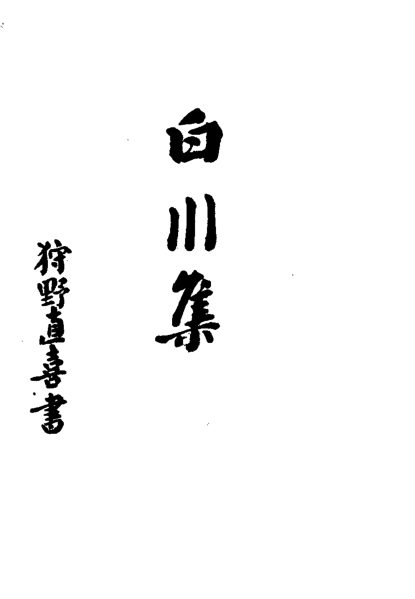 白川集
狩野直喜書